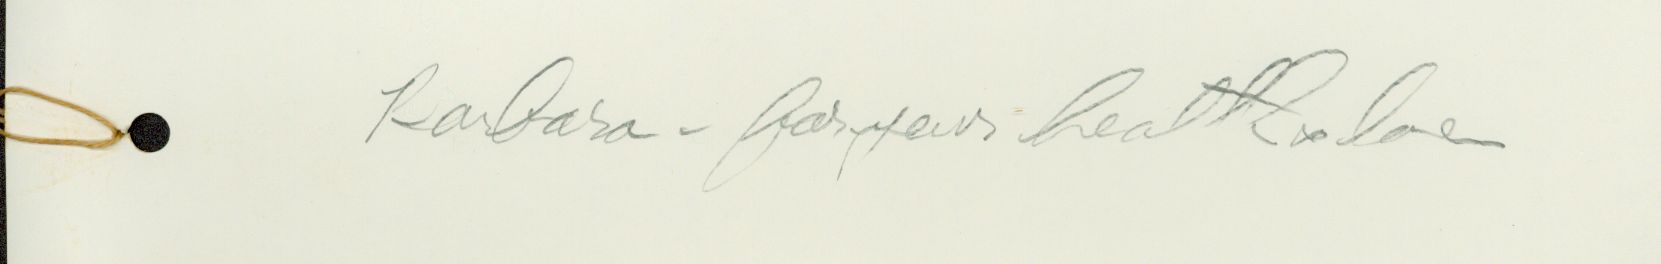 Barbara - for your health & love